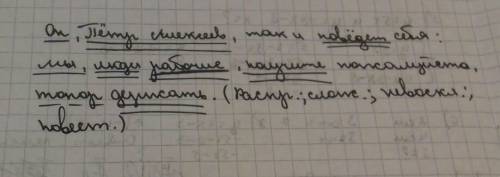 Он, Пётр Алексеев, так и поведёт себя:
мы, люди рабочие, научите пожалуйста,
топор держать. (Распр.; слож.; невоскл.;
повест.)